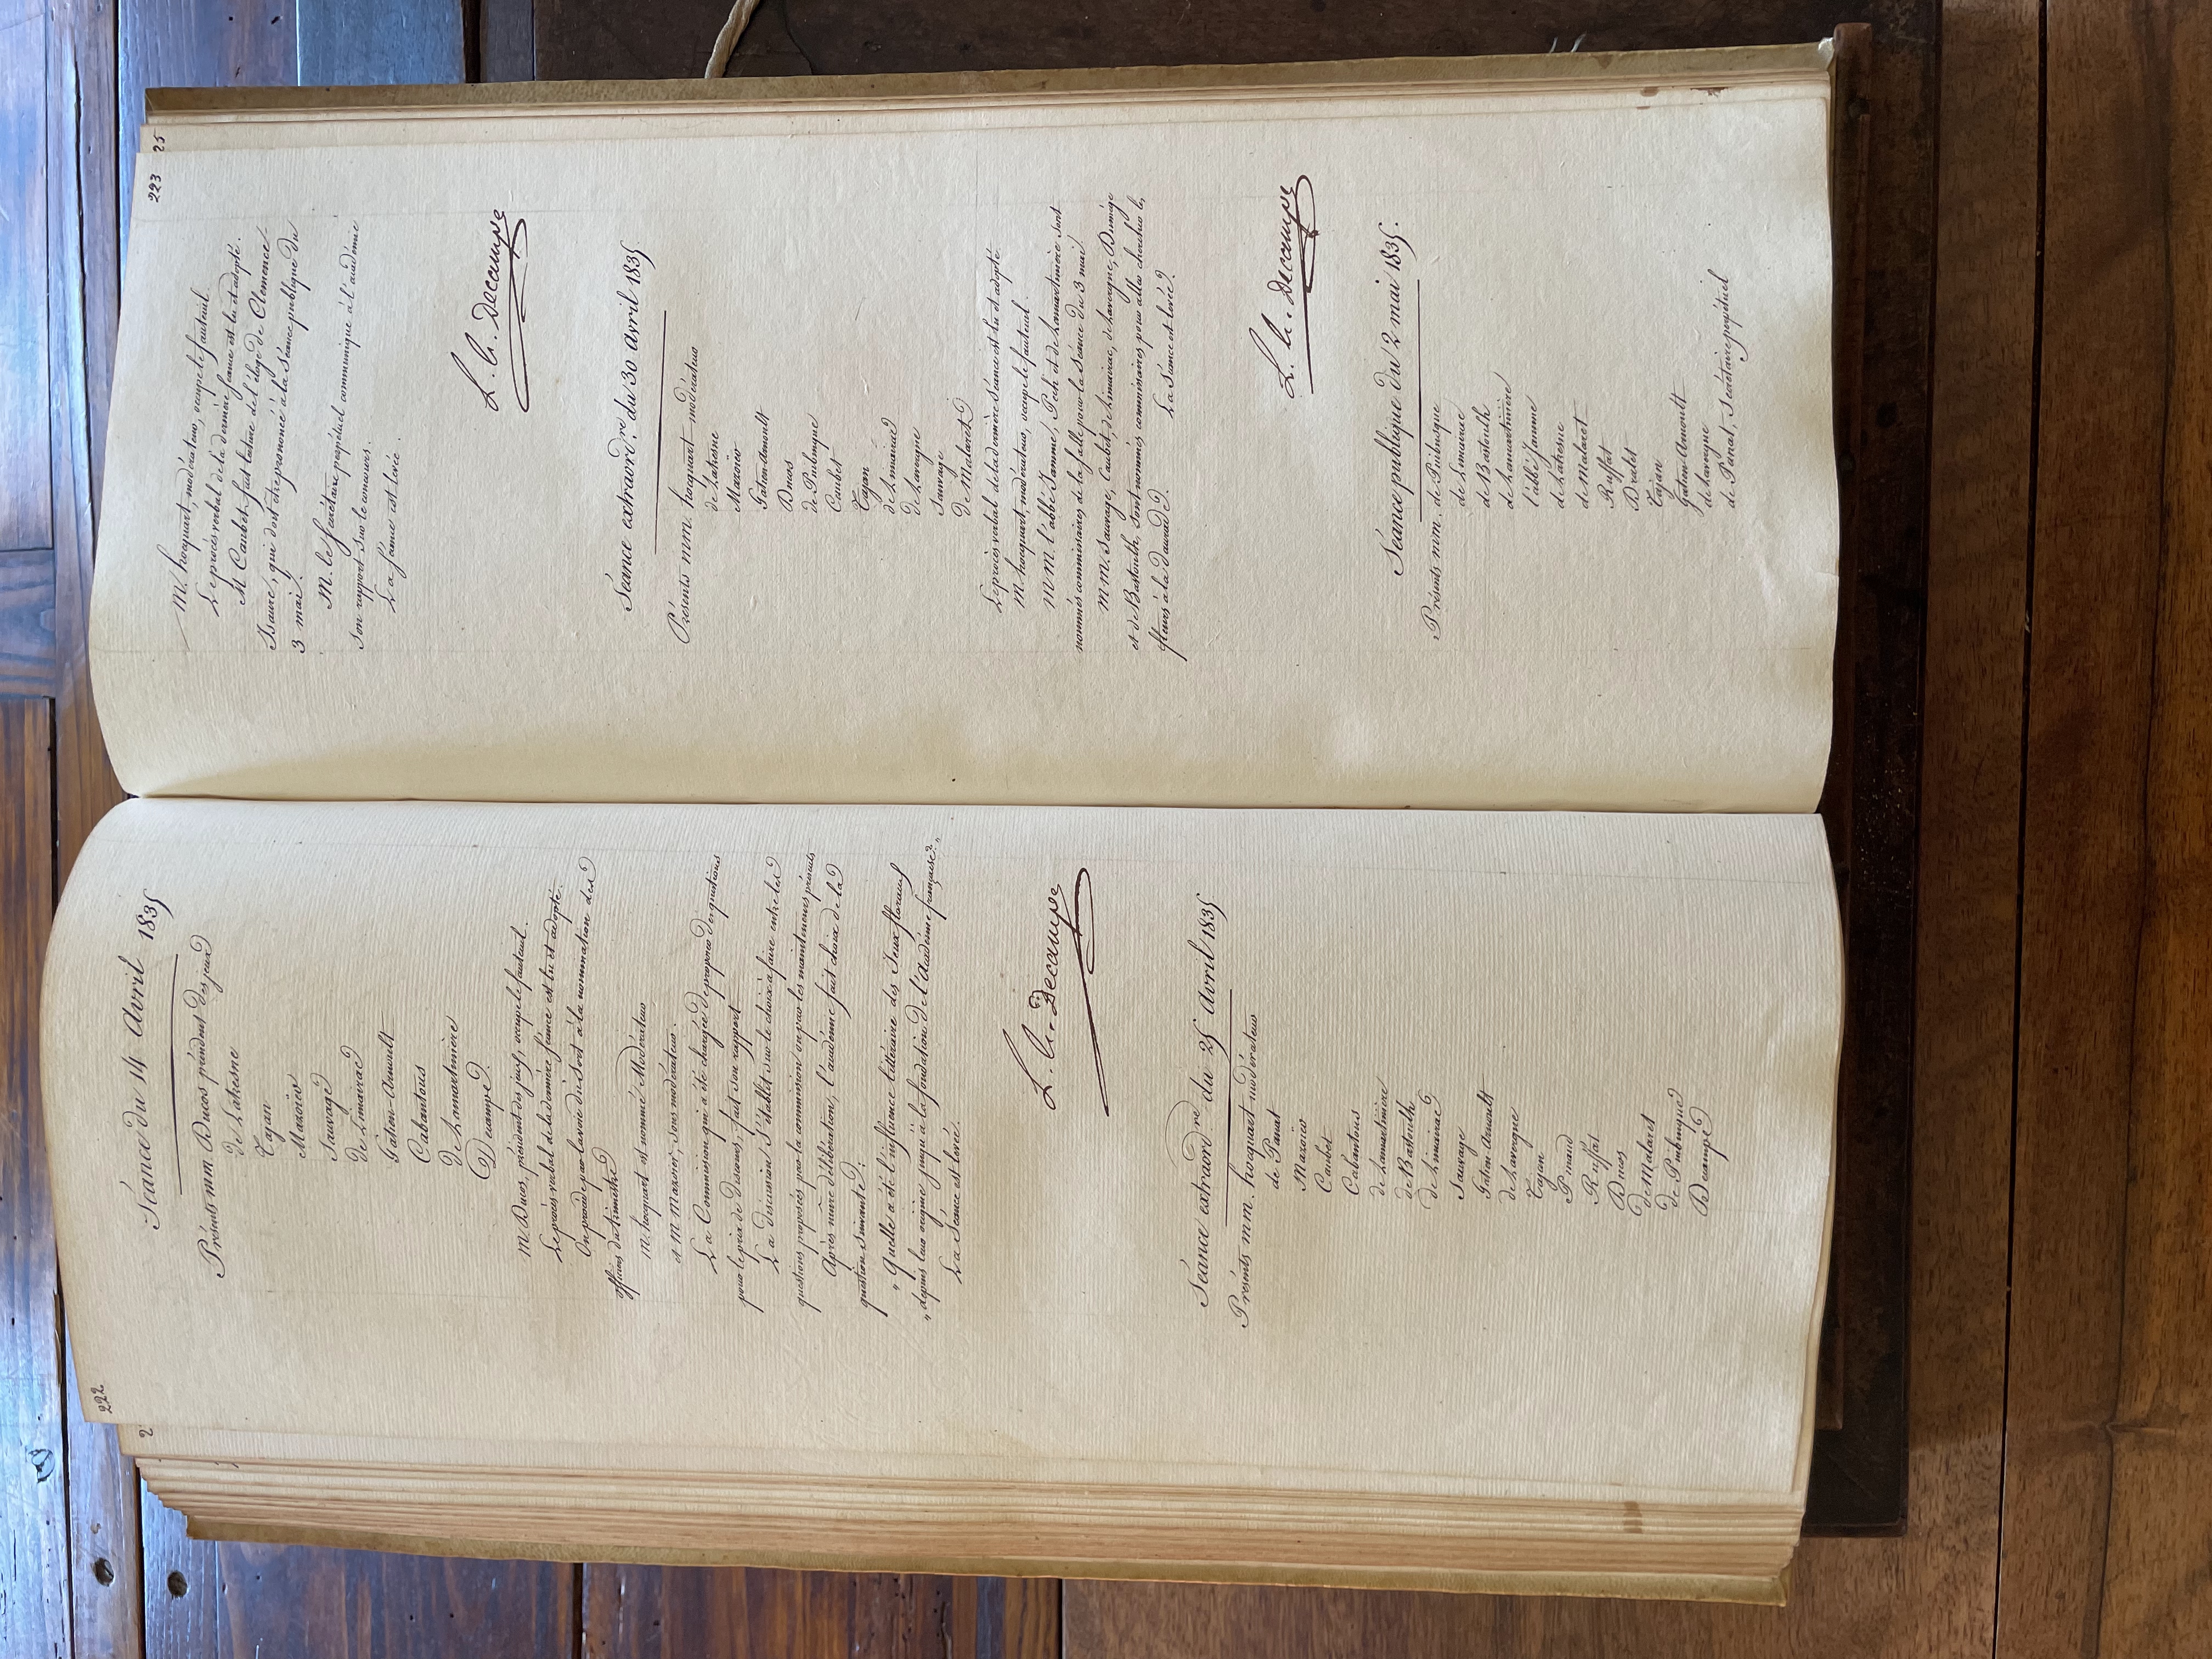 222
Séance du 14 avril 1835
Présents mm Ducos président des jeux
de Lahesne
Tajan
Mazoïer
Sauvage
de Limairac
Gatien-Arnoult
Cabantous
de Lamartinière
Decampe.
M. Ducos, président des jeux, occupe le fauteuil.
Le procès verbal de la dernière séance est lu et adopté.
On procède par la voie du sort à la nomination des
officiers du trimestre
M. hocquart est nommé Modérateur
et M Mazoïer, sous modérateur.
La Commission qui a été chargée de proposer des questions
pour le prix de discours, fait son rapport
La discussion s'établit sur le choix à faire entre les
questions proposées par la commission ou par les mainteneurs présents
Après mûre délibération, l'académie fait choix de la
question suivante:
" Quelle a été l'influence littéraire des Jeux floraux
" depuis leur origine jusqu'à la fondation de l'Académie française. "
La Séance est levée.
L. G. Decampe
Séance extraordre du 25 avril 1835
Présents mm. hocquart modérateur
de Panat
Mazoïer
Caubet
Cabantous
de Lamartinière
de Bastoulh
de Limairac
Sauvage
Gatien-Arnoult
de Lavergne
Tajan
Pinaud
Ruffat
Ducos
de Malaret
de Puibusque
Decampe
25
223
M. hocquart, modérateur, occupe le fauteuil.
Le procès verbal de la dernière séance est lu et adopté.
M Caubet fait lecture de l'éloge de Clémence
Isaure, qui doit être prononcé à la Séance publique du
3 mai.
M. le Secrétaire perpétuel communique à l'académie
son rapport sur le concours.
La séance est levée.
L. G. Decampe
Séance extraordre. du 30 avril 1835
Présents mm. hocquart modérateur
de Lahesne
Mazoïer
Gatien-Arnoult
Ducos
de Puibusque
Caubet
Tajan
de Limairac
de Lavergne
Sauvage
de Malaret
Le procès verbal de la dernière séance est lu et adopté
M. hocquart, modérateur, occupe le fauteuil.
MM. l'abbé Jamme, Pech et de Lamartinière sont
nommés commissaires de la salle pour la Séance du 3 mai
MM. Sauvage, Caubet, de Limairac, de Lavergne, Dumège
et de Bastoulh, sont nommés commissaires pour aller chercher les
fleurs à la daurade.
La Séance est levée.
L. G. Decampe
Séance publique du 2 mai 1835.
Présents mm. de Puibusque
de Limairac
de Bastoulh
de Lamartinière
l'abbé Jamme
de Lahesne
de Malaret
Ruffat
Dralet
Tajan
Gatien-Arnoult
de Lavergne
de Panat, Secrétaire perpétuel